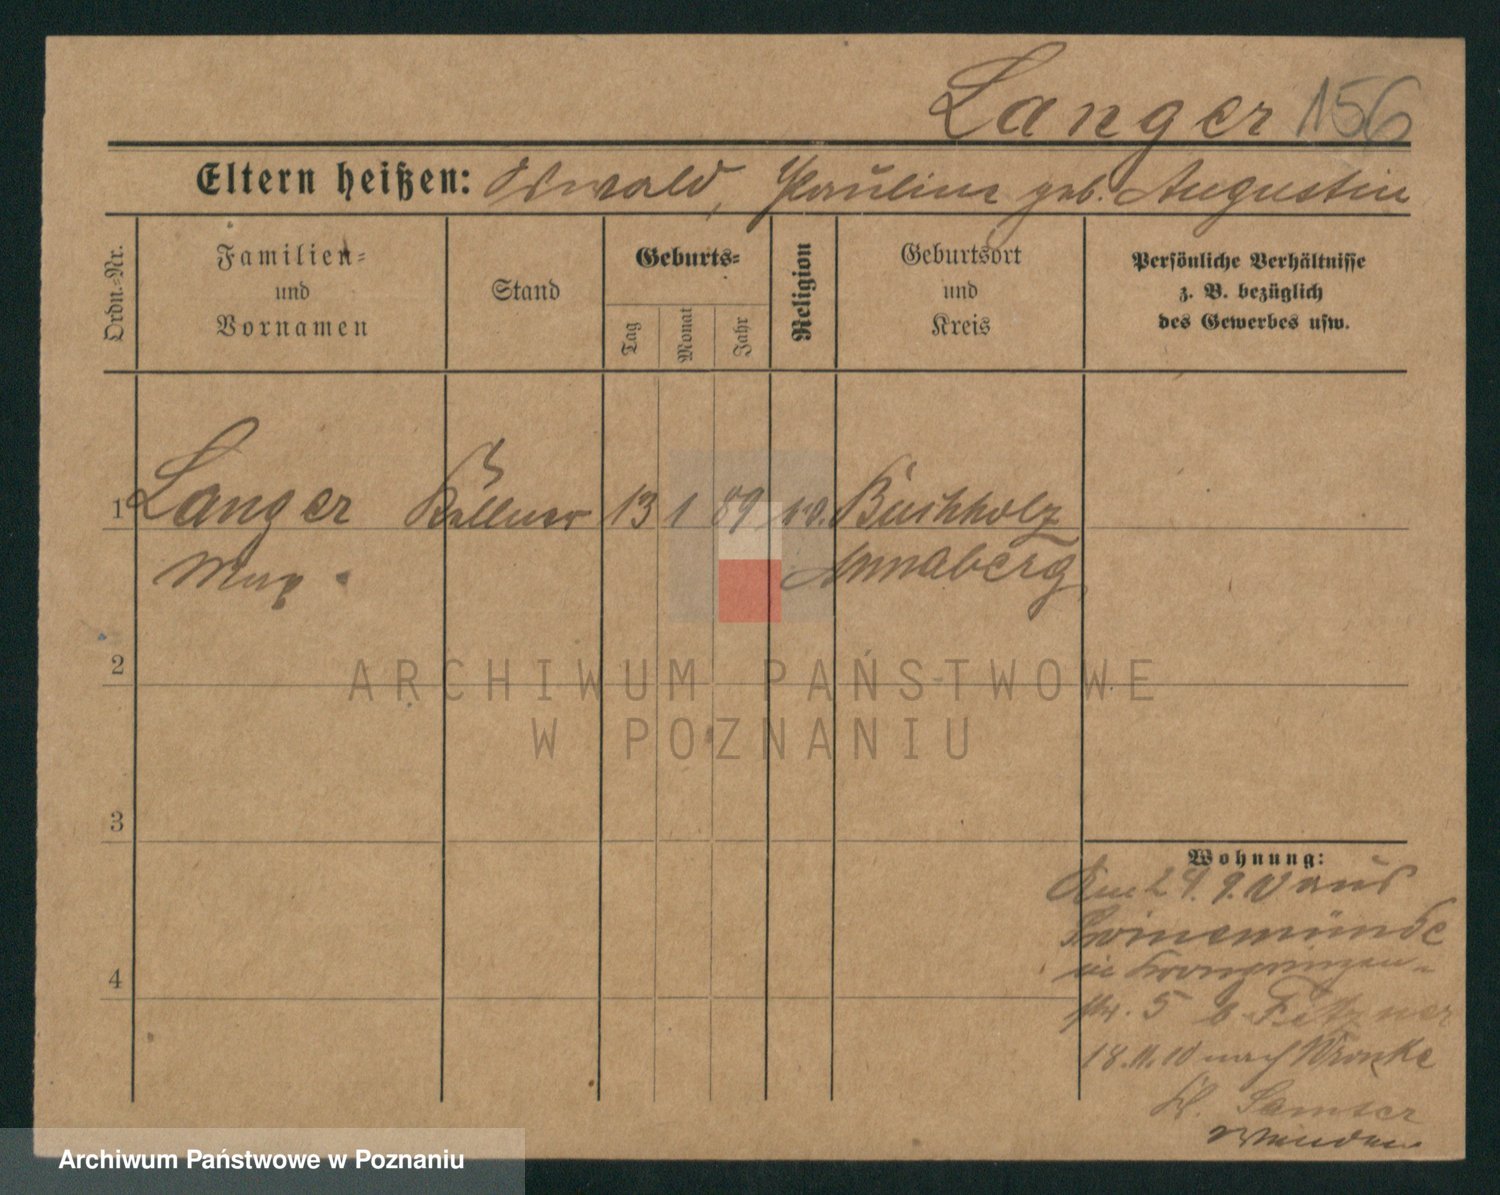 Langer 156
Eltern heißen: Oswald, Pauline geb. Augustin
Ordn.-Nr.
Familien-
und
Vornamen
Stand
Geburts-
Tag
Monat
Jahr
Religion
Geburtsort
und
Kreis
Persönliche Verhältnisse
z. B. bezüglich
des Gewerbes usw.
1 Langer Kellner 13 1 89 ev. Buchholz
Max Annaberg
2
3
4
Wohnung:
Am 29.9.10 aus
Swinemünde
in Kronprinzen-
str. 5 b. Fitzner
18.11.10 nach Wronke
Samter
Wenden
ARCHIWUM PAŃSTWOWE
W POZNANIU
Archiwum Państwowe w Poznaniu